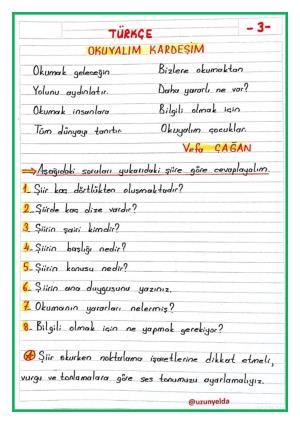 TÜRKÇE
-3-
OKUYALIM KARDEŞİM
Okumak geleceğin
Yolunu aydınlatır.
Okumak insanlara
Tüm dünyayı tanıtır.
Bizlere okumaktan
Daha yararlı ne var?
Bilgili olmak için
Okuyalım çocuklar.
Vefa ÇAĞAN
Aşağıdaki soruları yukarıdaki şiire göre cevaplayalım.
1- Şiir kaç dörtlükten oluşmaktadır?
2- Şiirde kaç dize vardır?
3- Şiirin şairi kimdir?
4- Şiirin başlığı nedir?
5- Şiirin konusu nedir?
6- Şiirin ana duygusunu yazınız.
7- Okumanın yararları nelermiş?
8- Bilgili olmak için ne yapmak gerekiyor?
Şiir okurken noktalama işaretlerine dikkat etmeli,
vurgu ve tonlamalara göre ses tonumuzu ayarlamalıyız.
@uzunyelda